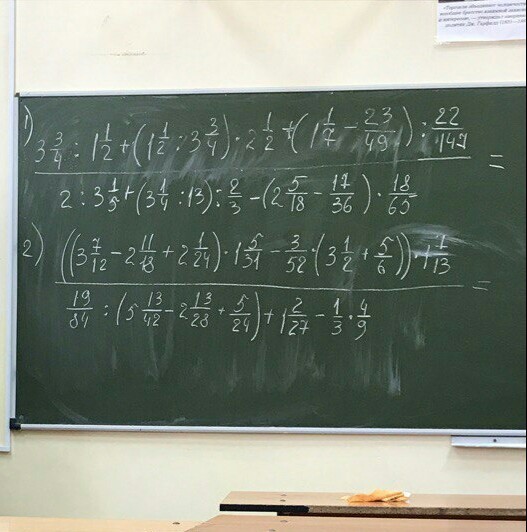 1) 3 3/4 : 1 1/2 + (1 1/2 : 3 3/4) : 2 1/2 + (1 1/7 - 23/49) : 22/147 =
2 : 3 1/5 + (3 1/4 : 13) : 2/3 - (2 5/18 - 17/36) · 18/65
2) ((3 7/12 - 2 11/18 + 2 1/24) · 1 5/31 - 3/52 · (3 1/2 + 5/6)) · 1 7/13 =
19/84 : (5 13/42 - 2 13/28 + 5/24) + 1 2/27 - 1/3 · 4/9